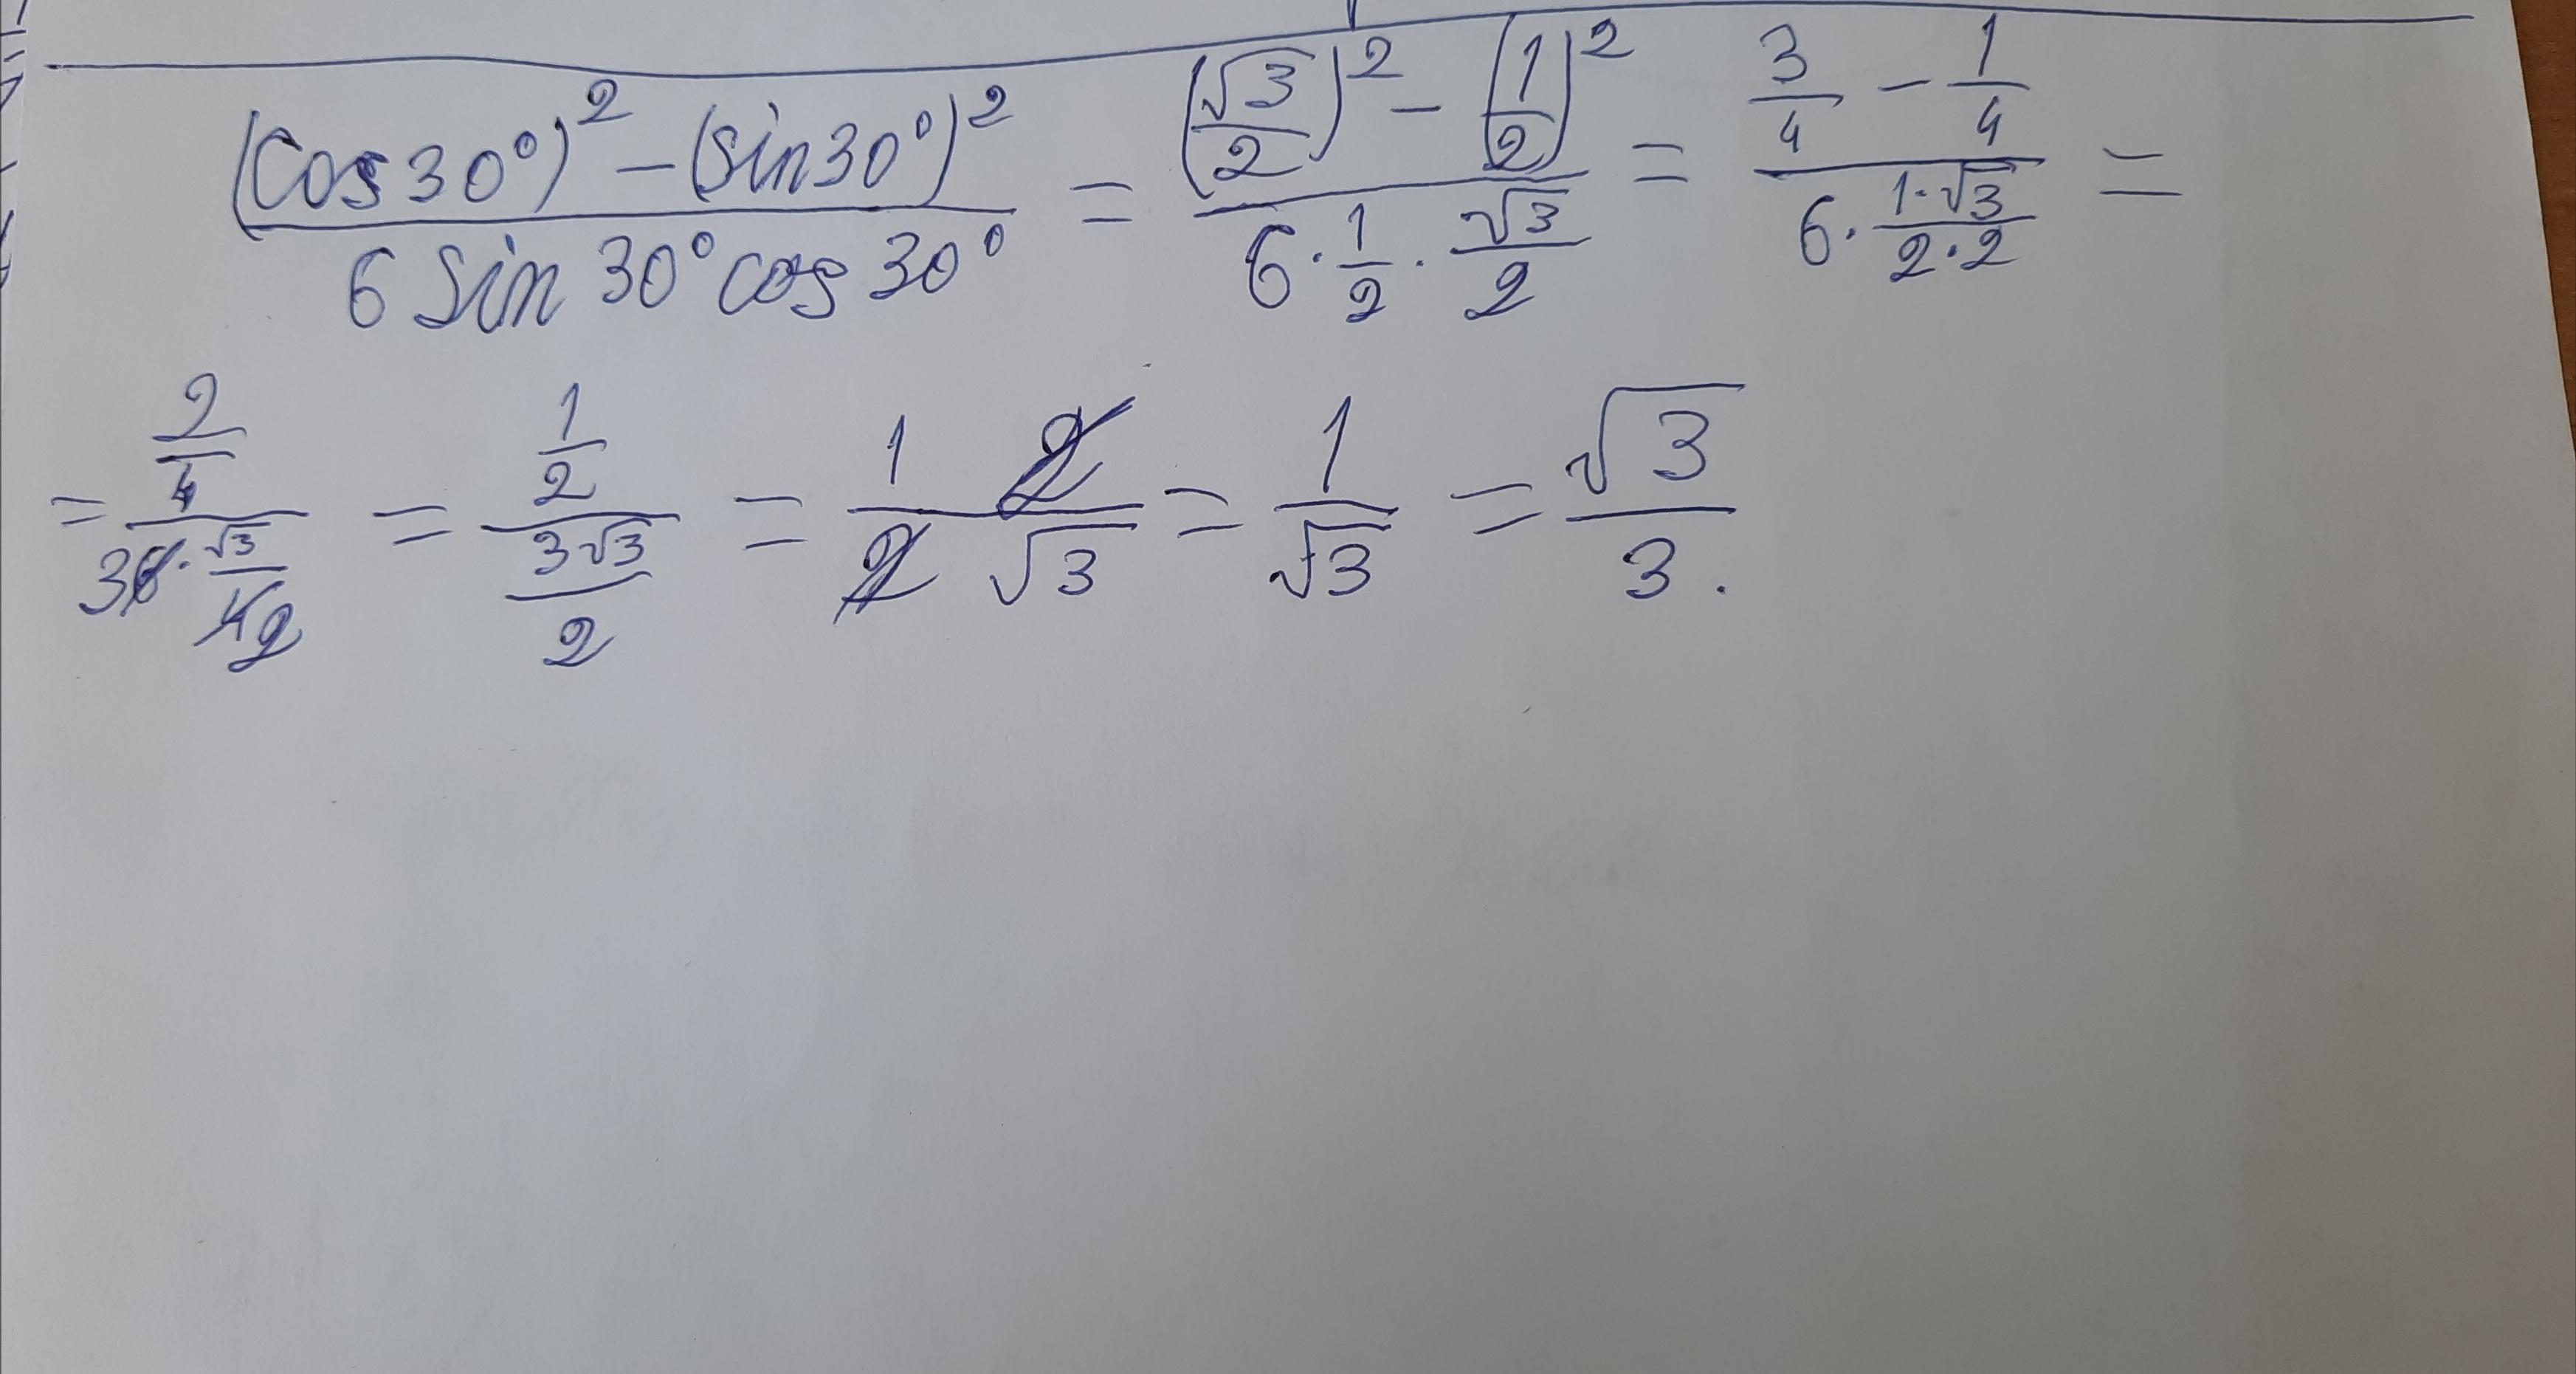 ((cos 30°)² − (sin 30°)²)/(6 sin 30° cos 30°) = ((√3/2)² − (1/2)²)/(6 · 1/2 · √3/2) = (3/4 − 1/4)/(6 · (1·√3)/(2·2)) =
= (2/4)/(3 6 · √3/(4 2)) = (1/2)/((3√3)/2) = 1/2 2/√3 = 1/√3 = √3/3.